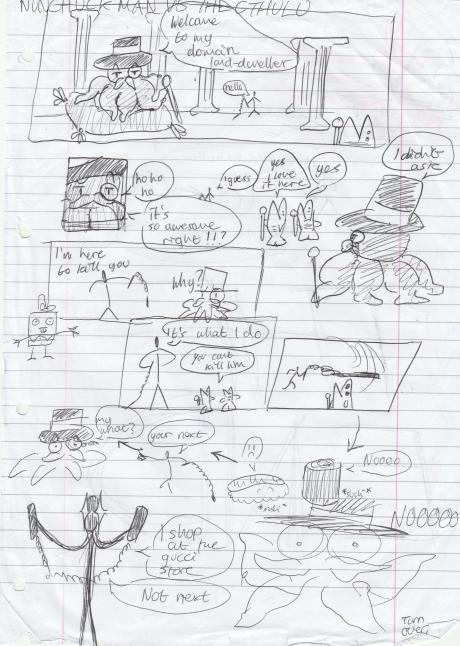 NUNCHUCK MAN VS THE CTHULO
Welcome
to my
domain
land-dweller
hello
I didn't
ask
ho ho
ho
it's
so awesome
right!!?
I guess
yes
love
it here
yes
I'm here
to kill you
Why?
It's what I do
you cant
kill him
my
what?
your next
NOOOO
*sushi*
*sushi*
NOOOOO
I shop
at the
gucci
store
Not next
Turn
over